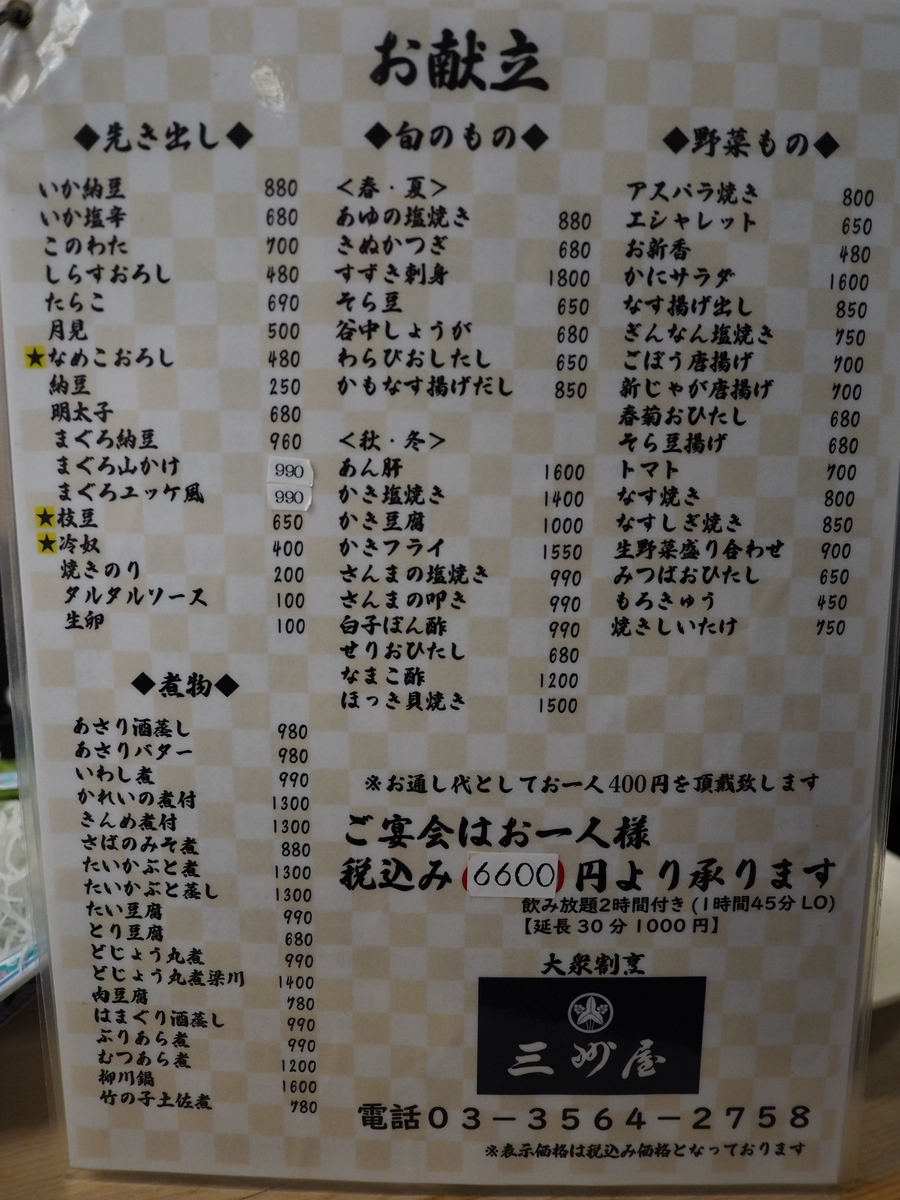 お献立
◆先き出し◆
いか納豆 880
いか塩辛 680
このわた 700
しらすおろし 480
たらこ 690
月見 500
★なめこおろし 480
納豆 250
明太子 680
まぐろ納豆 960
まぐろ山かけ 990
まぐろユッケ風 990
★枝豆 650
★冷奴 400
焼きのり 200
タルタルソース 100
生卵 100
◆煮物◆
あさり酒蒸し 980
あさりバター 980
いわし煮 990
かれいの煮付 1300
きんめ煮付 1300
さばのみそ煮 880
たいかぶと煮 1300
たいかぶと蒸し 1300
たい豆腐 990
とり豆腐 680
どじょう丸煮 990
どじょう丸煮梁川 1400
肉豆腐 780
はまぐり酒蒸し 990
ぶりあら煮 990
むつあら煮 1200
柳川鍋 1600
竹の子土佐煮 780
◆旬のもの◆
＜春・夏＞
あゆの塩焼き 880
きぬかつぎ 680
すずき刺身 1800
そら豆 650
谷中しょうが 680
わらびおしたし 650
かもなす揚げだし 850
＜秋・冬＞
あん肝 1600
かき塩焼き 1400
かき豆腐 1000
かきフライ 1550
さんまの塩焼き 990
さんまの叩き 990
白子ぽん酢 990
せりおひたし 680
なまこ酢 1200
ほっき貝焼き 1500
◆野菜もの◆
アスパラ焼き 800
エシャレット 650
お新香 480
かにサラダ 1600
なす揚げ出し 850
ぎんなん塩焼き 750
ごぼう唐揚げ 700
新じゃが唐揚げ 700
春菊おひたし 680
そら豆揚げ 680
トマト 700
なす焼き 800
なすしぎ焼き 850
生野菜盛り合わせ 900
みつばおひたし 650
もろきゅう 450
焼きしいたけ 750
※お通し代としてお一人400円を頂戴致します
ご宴会はお一人様
税込み(6600)円より承ります
飲み放題2時間付き(1時間45分LO)
【延長30分1000円】
大衆割烹
三州屋
電話03－3564－2758
※表示価格は税込み価格となっております